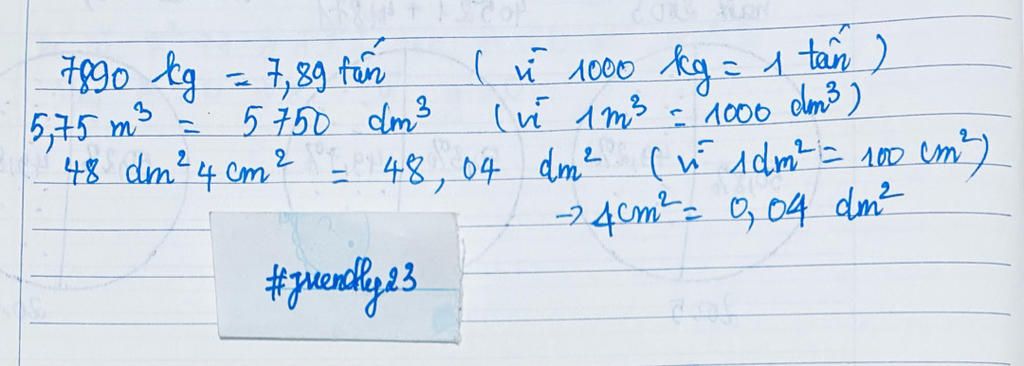 7890 kg = 7,89 tấn ( vì 1000 kg = 1 tấn )
5,75 m³ = 5 750 dm³ ( vì 1m³ = 1000 dm³ )
48 dm² 4 cm² = 48,04 dm² ( vì 1dm² = 100 cm² )
→ 4cm² = 0,04 dm²